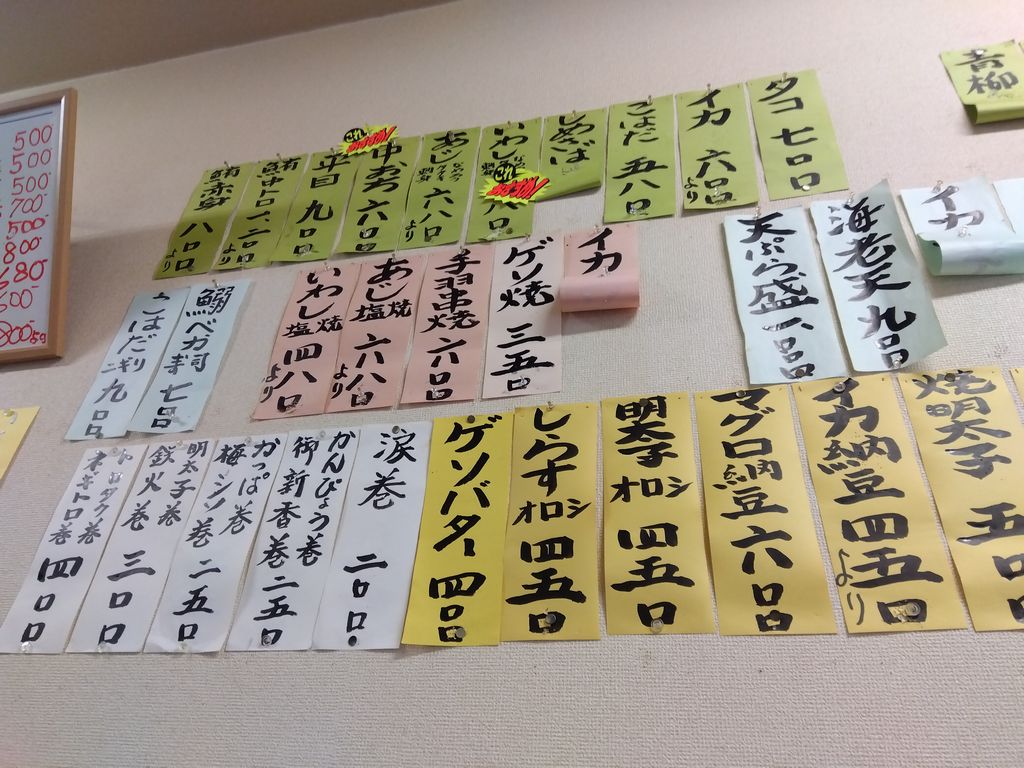 500
500
500
700
500
800
680
600
タコ 七〇〇
イカ 六〇〇より
こはだ 五八〇
しめさば
いわし
あじ 六八〇より
中おち 六八〇
平目 九〇〇
鮪中トロ 一、二〇〇より
鮪赤身 八〇〇より
青柳
これおすすめ!
これおすすめ!
イカ
海老天 九〇〇
天ぷら盛 一、〇〇〇
イカ
ゲソ焼 三五〇
手羽串焼 六〇〇
あじ塩焼 六八〇より
いわし塩焼 四八〇より
鰯ベガ寿司 七〇〇
こはだ 九〇〇
焼明太子 五〇〇
イカ納豆 四五〇より
マグロ納豆 六〇〇
明太子オロシ 四五〇
しらすオロシ 四五〇
ゲソバター 四〇〇
涙巻 二〇〇
かんぴょう巻
御新香巻 二五〇
かっぱ巻
梅シソ巻 二五〇
明太子巻
鉄火巻 三〇〇
トロタク巻
ネギトロ巻 四〇〇